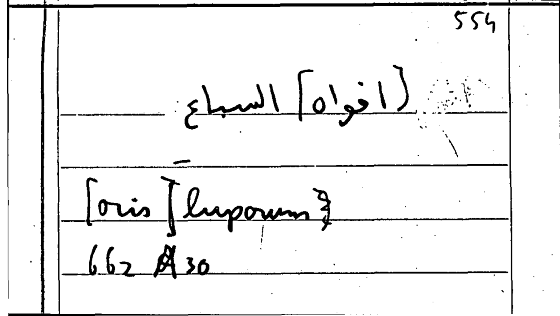 554
(افواه] السباع
[oris] luporum}
662 A 30